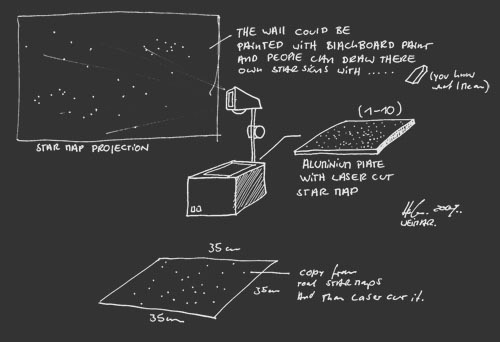 THE WALL COULD BE
PAINTED WITH BLACKBOARD PAINT
AND PEOPLE CAN DRAW THERE
OWN STAR SIGNS WITH .....
(YOU KNOW
WHAT I MEAN)
STAR MAP PROJECTION
(1-10)
ALUMINIUM PLATE
WITH LASER CUT
STAR MAP
2007..
WEIMAR.
35cm
35cm
35cm
COPY from
real STAR MAPS
And then LASER CUT it.